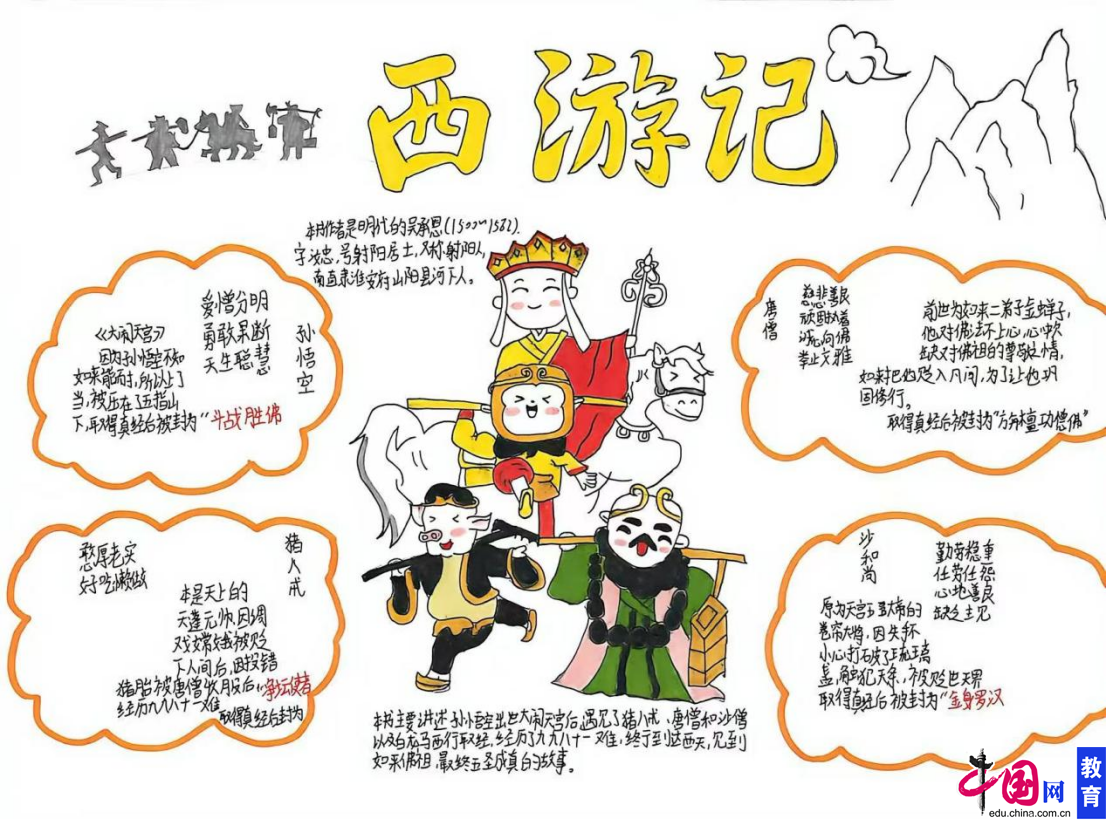 西游记
本书作者是明代的吴承恩(1500~1582)
字汝忠,号射阳居士,又称射阳山人,
南直隶淮安府山阳县河下人。
孙悟空
爱憎分明
勇敢果断
天生聪慧
《大闹天宫》
因为孙悟空不知
如来能耐,所以上了
当,被压在了五指山
下,取得真经后被封为“斗战胜佛
唐僧
慈悲善良
顽固执着
诚心向佛
举止文雅
前世为如来二弟子金蝉子,
他对佛法不上心,心中欠
缺对佛祖的尊敬之情,
如来把他贬入凡间,为了让他巩
固修行。
取得真经后被封为“旃檀功德佛”
猪八戒
憨厚老实
好吃懒做
本是天上的
天蓬元帅,因调
戏嫦娥被贬
下人间后,因投错
猪胎被唐僧收月殳后,
经历九九八十一难
取得真经后封为
净坛使者
沙和尚
勤劳稳重
任劳任怨
心地善良
缺乏主见
原为天宫玉皇大帝的
卷帘大将,因失杯
小心打破了琉璃
盏,触犯天条,被贬出天界
取得真经后被封为“金身罗汉
本书主要讲述孙悟空出世大闹天宫后,遇见了猪八戒、唐僧和沙僧
以及白龙马西行取经,经历了九九八十一难,终于到达西天,见到
如来佛祖,最终五圣成真的故事。
中国网
edu.china.com.cn
教育